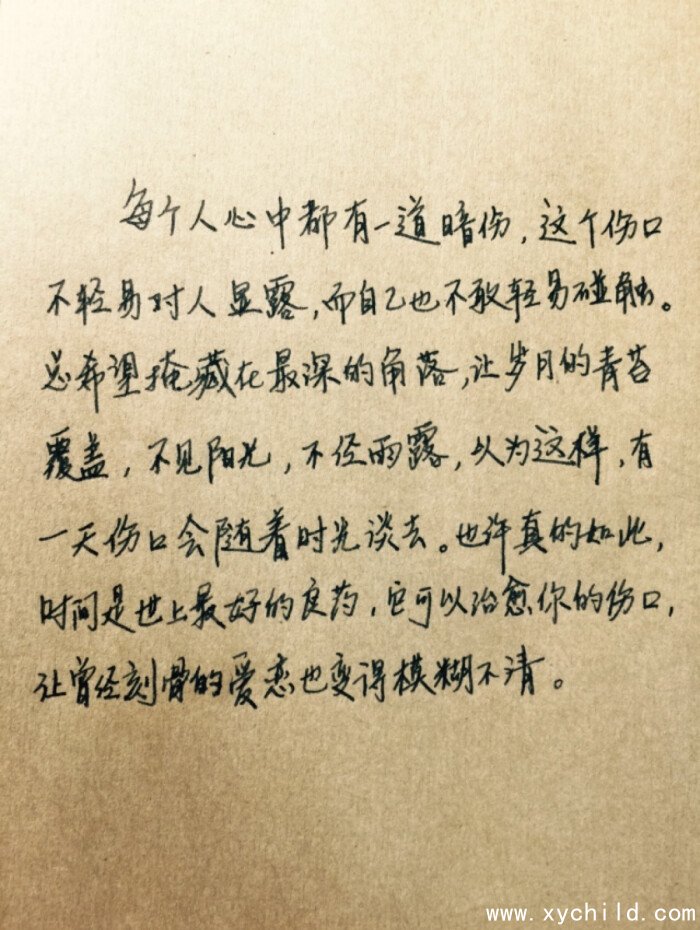 每个人心中都有一道暗伤，这个伤口
不轻易对人显露，而自己也不敢轻易碰触。
总希望掩藏在最深的角落，让岁月的青苔
覆盖，不见阳光，不经雨露，以为这样，有
一天伤口会随着时光谈去。也许真的如此，
时间是世上最好的良药，它可以治愈你的伤口，
让曾经刻骨的爱恋也变得模糊不清。
www.xychild.com